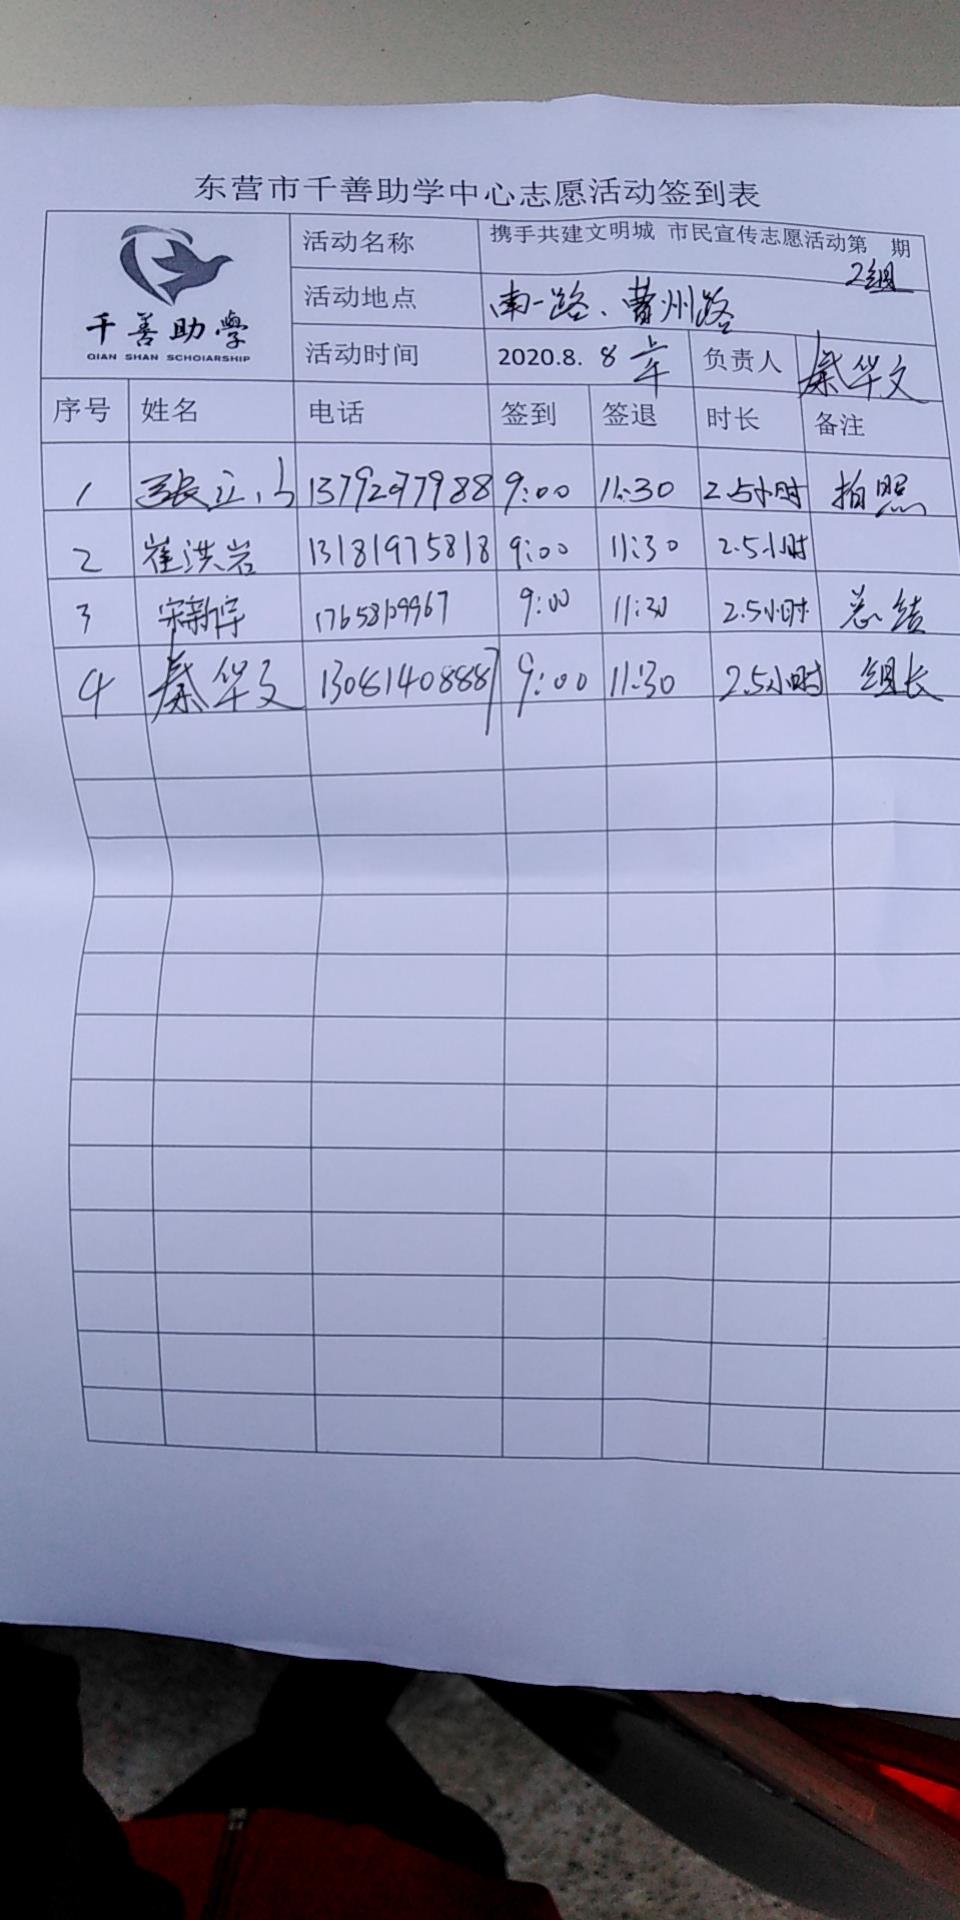 东营市千善助学中心志愿活动签到表
千善助學
QIAN SHAN SCHOIARSHIP
活动名称 携手共建文明城 市民宣传志愿活动第 期
2组
活动地点 南一路、曹州路
活动时间 2020.8. 8 上午 负责人 秦华文
序号 姓名 电话 签到 签退 时长 备注
1 张立山 9:00 11:30 2.5小时 拍照
2 崔洪岩 13181975818 9:00 11:30 2.5小时
3 宋新宇 9:00 11:30 2.5小时 总结
4 秦华文 13081408887 9:00 11:30 2.5小时 组长